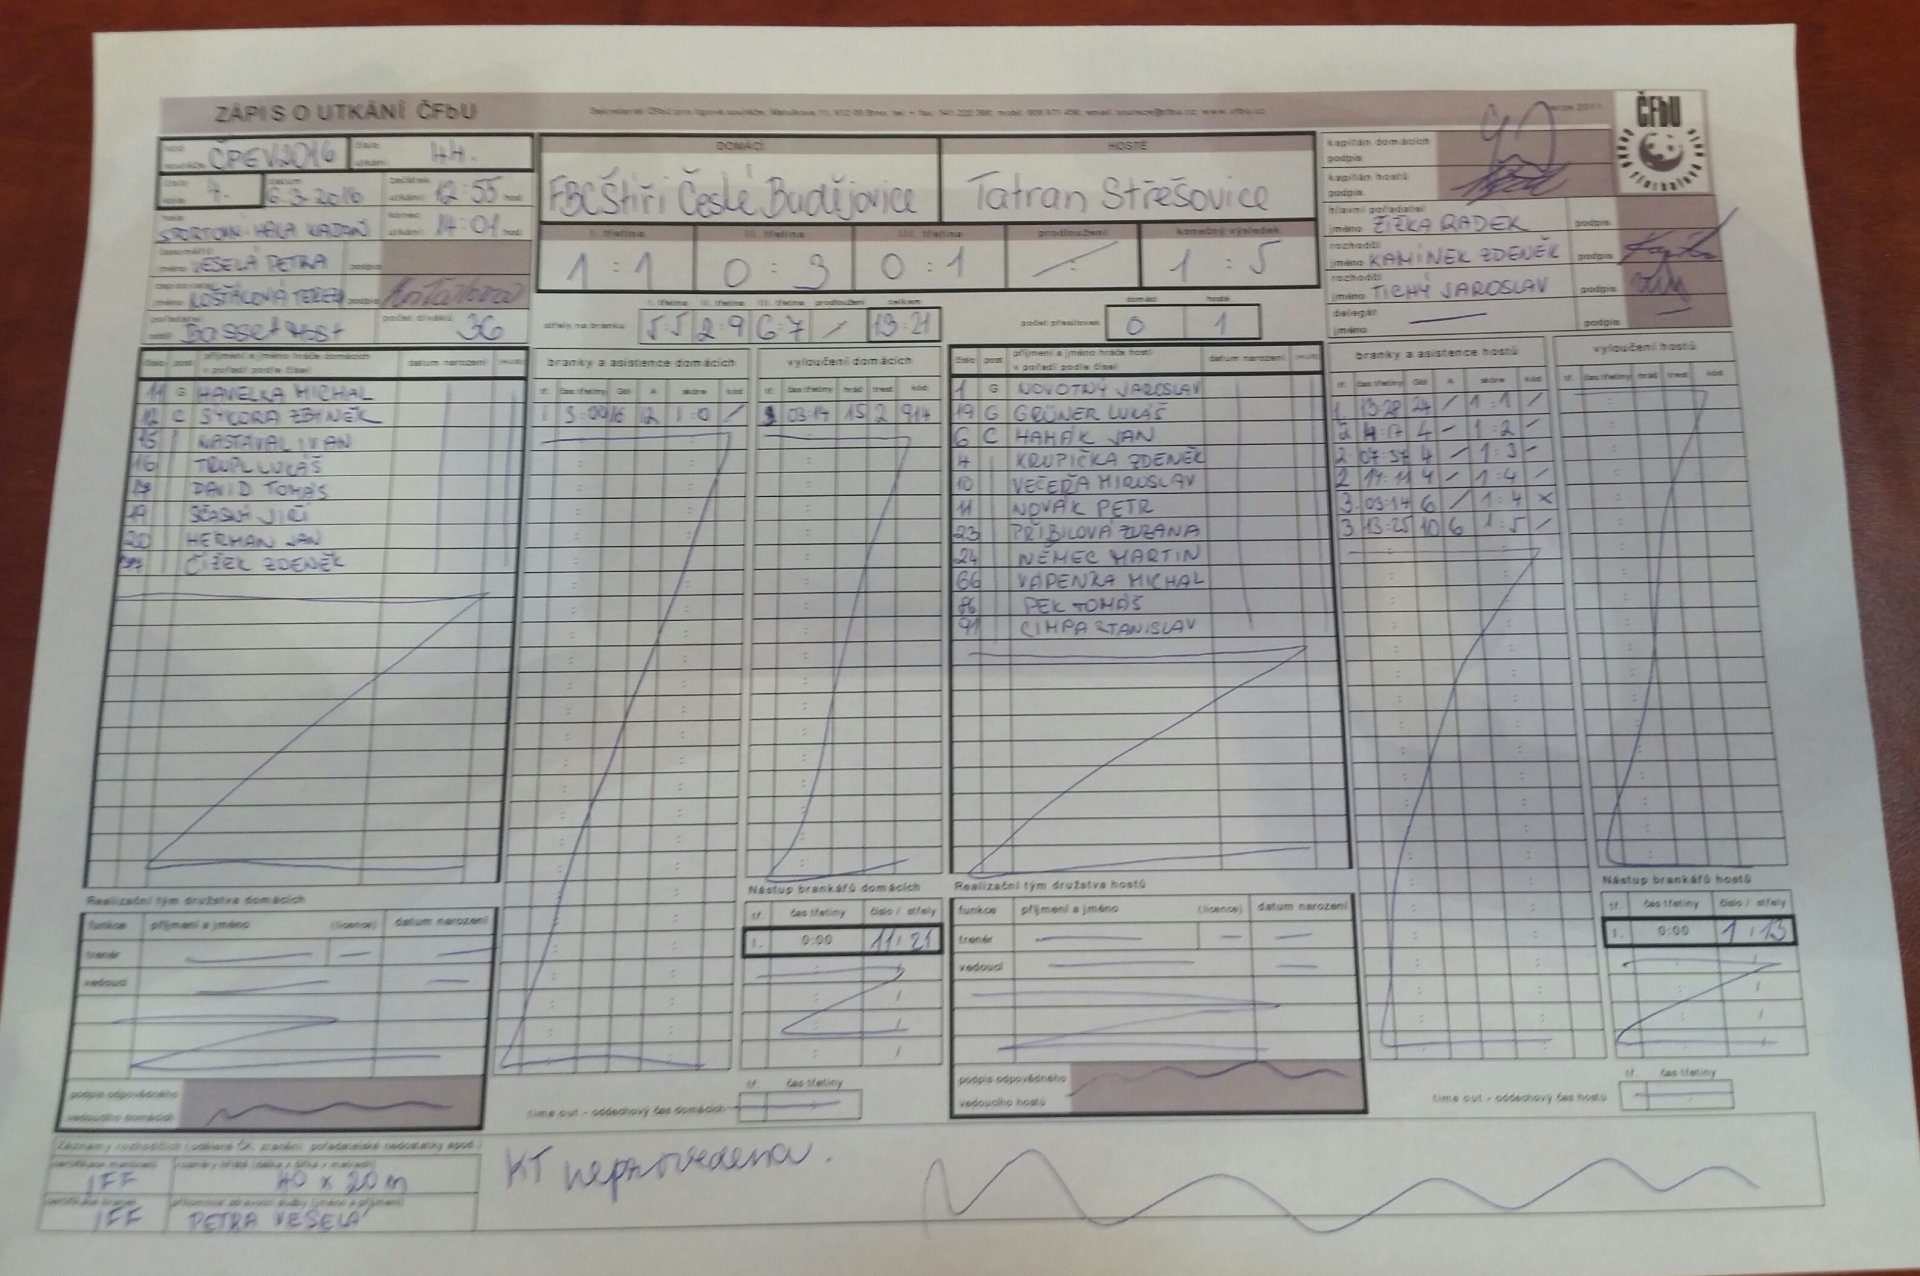 ZÁPIS O UTKÁNÍ ČFbU
ČFbU
ČPEV2016 číslo utkání 44.
4. datum 6.3.2016 začátek utkání 12:55 hod
SPORTOVNÍ HALA KADAŇ konec utkání 14:01 hod
jméno VESELÁ PETRA podpis
jméno KOŠŤÁKOVÁ podpis
počet diváků 36
DOMÁCÍ HOSTÉ
FBC Štíři České Budějovice Tatran Střešovice
I. třetina II. třetina III. třetina prodloužení konečný výsledek
1:1 0:3 0:1 / 1:5
I. třetina II. třetina III. třetina prodloužení celkem
střely na branku: 5:5 2:9 6:7 / 13:21
domácí hosté
počet přesilovek 0 1
kapitán domácích podpis
kapitán hostů podpis
hlavní pořadatel jméno ŽIŽKA RADEK podpis
rozhodčí jméno KAMÍNEK ZDENĚK podpis
rozhodčí jméno TICHÝ JAROSLAV podpis
delegát jméno podpis
číslo post příjmení a jméno hráče domácích v pořadí podle čísel datum narození
11 G HAVELKA MICHAL
12 C SÝKORA ZBYNĚK
15 NASTAVAL IVAN
16 TRUPL LUKÁŠ
DAVID TOMÁŠ
19 ŠČASNÝ JIŘÍ
20 HEŘMAN JAN
ČÍŽEK ZDENĚK
branky a asistence domácích
tř. čas třetiny Gól A skóre kód
1:0 /
vyloučení domácích
tř. čas třetiny hráč trest kód
03:14 15 2 914
číslo post příjmení a jméno hráče hostí v pořadí podle čísel datum narození
1 G NOVOTNÝ JAROSLAV
19 G GRÜNER LUKÁŠ
6 C HAMÁK JAN
4 KRUPIČKA ZDENĚK
10 VEČEŘA MIROSLAV
11 NOVÁK PETR
23 PŘIBILOVÁ ZUZANA
24 NĚMEC MARTIN
66 VÁPENKA MICHAL
PEK TOMÁŠ
91 CIMPA STANISLAV
branky a asistence hostů
tř. čas třetiny Gól A skóre kód
1. 13:28 24 / 1:1 /
2 4:17 4 – 1:2 –
2 07:57 4 / 1:3 –
2 17:11 4 – 1:4 –
3 03:14 6 / 1:4 x
3 13:25 10 6 1:5 /
vyloučení hostů
tř. čas třetiny hráč trest kód
Realizační tým družstva domácích
funkce příjmení a jméno (licence) datum narození
trenér
vedoucí
podpis odpovědného vedoucího domácích
Nástup brankářů domácích
tř. čas třetiny číslo / střely
1. 0:00 11 / 21
tř. čas třetiny
time out - oddechový čas domácích
Realizační tým družstva hostů
funkce příjmení a jméno (licence) datum narození
trenér
vedoucí
podpis odpovědného vedoucího hostů
Nástup brankářů hostů
tř. čas třetiny číslo / střely
1. 0:00 1 / 13
tř. čas třetiny
time out - oddechový čas hostů
IFF 40 x 20 m
IFF PETRA VESELÁ
KT neprovedena.